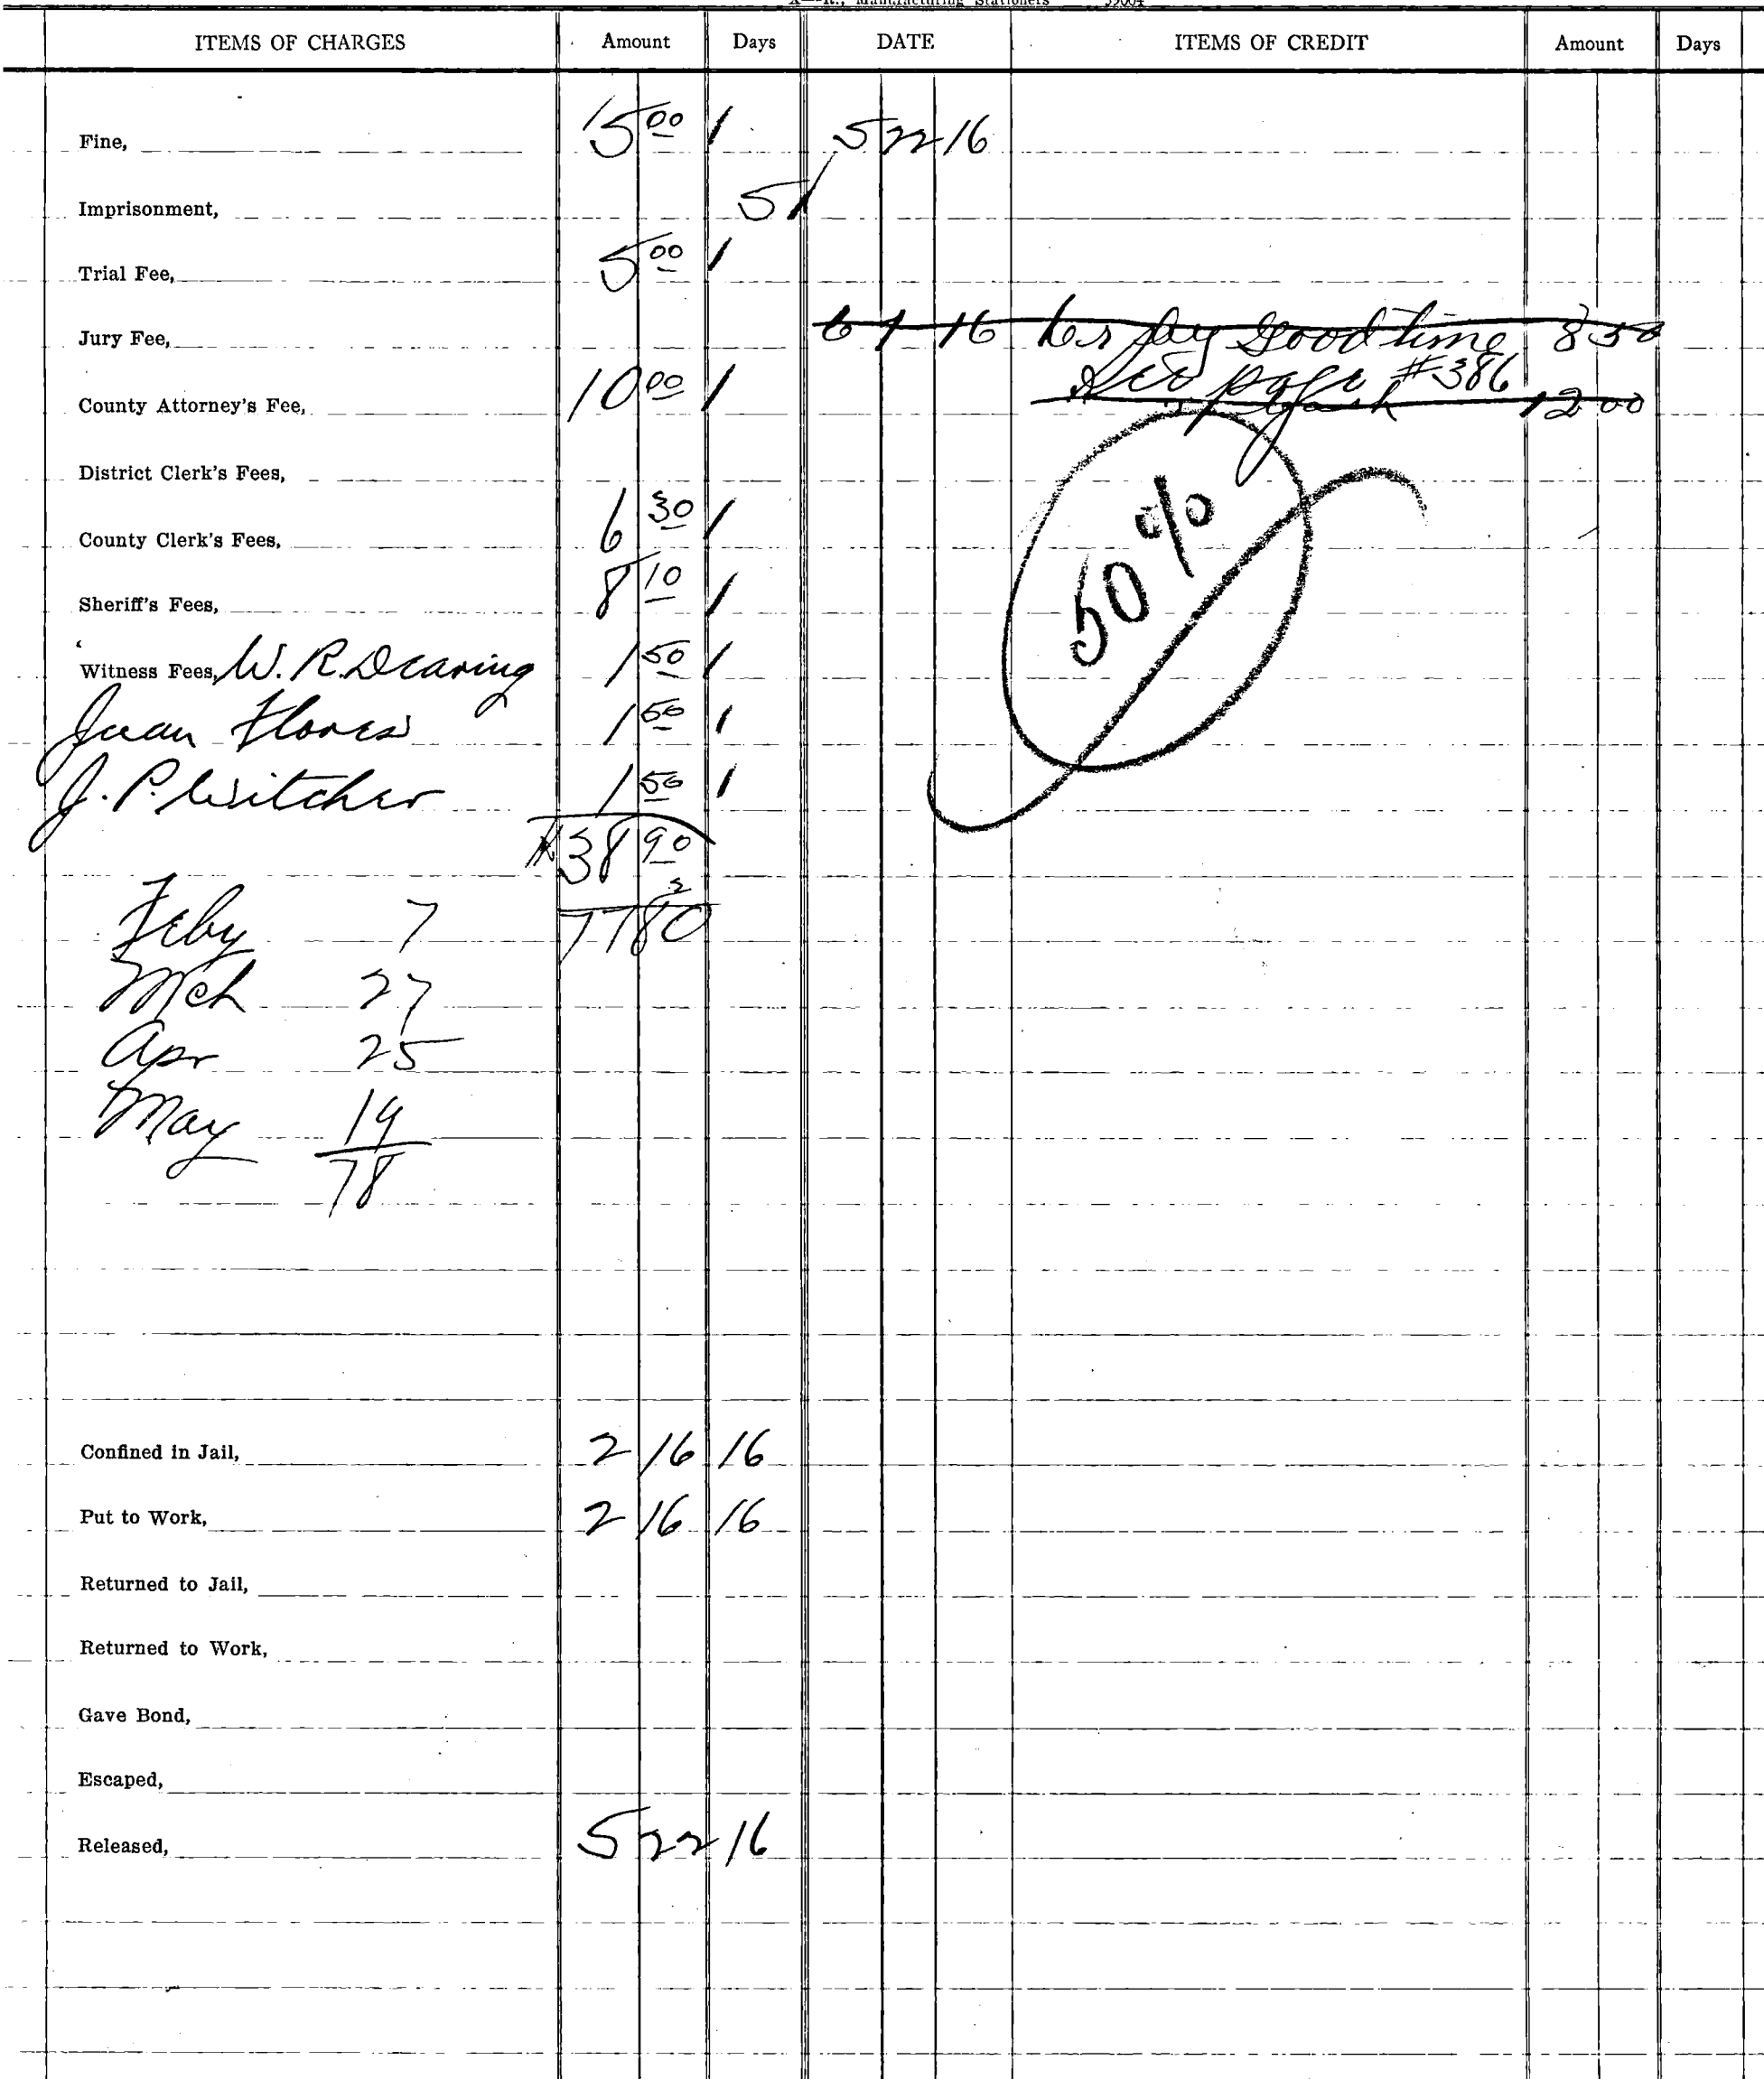 X—R., Manufacturing Stationers 39004
ITEMS OF CHARGES Amount Days DATE ITEMS OF CREDIT Amount Days
Fine, 15 00 / 5 22 16
Imprisonment, 5 /
Trial Fee, 5 00 /
Jury Fee, 6 1 16 good time 8 50
See page #386
County Attorney's Fee, 10 00 / 12 00
District Clerk's Fees,
County Clerk's Fees, 6 30 /
50 %
Sheriff's Fees, 8 10 /
Witness Fees, W. R. Dearing 1 50 /
Juan Flores 1 50 /
J. P. Witcher 1 50 /
38 90
2
Feby 7 77 80
Mch 27
Apr 25
May 19
78
Confined in Jail, 2 16 16
Put to Work, 2 16 16
Returned to Jail,
Returned to Work,
Gave Bond,
Escaped,
Released, 5 22 16